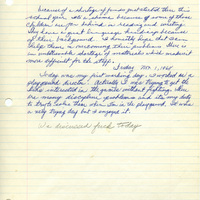 because of a shortage of funds just started them this
school year. It's a shame because some of those
children are often behind in reading and writing.
They have a great language handicap because
of their background. I honestly hope that I can
help them in overcoming their problems. There is
an unbelievable shortage of materials which makes it
more difficult for the staff.
Friday Nov. 1, 1968
Today was my first working day. I worked as a
playground director. Actually I was trying to get the
kids interested in the games without fighting. There
are many discipline problems and it's my duty
to try to solve them when I'm in the playground. It was
a very trying day but I enjoyed it.
today